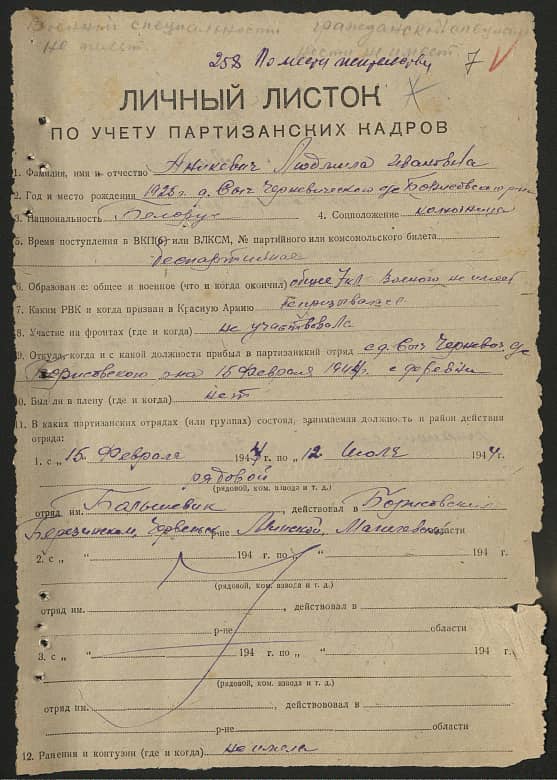 Военной специальности гражданской специальн
не имеет. ности не имеет
258 По месту жительству 7
ЛИЧНЫЙ ЛИСТОК
ПО УЧЕТУ ПАРТИЗАНСКИХ КАДРОВ
1. Фамилия, имя и отчество Аникевич Людмила Ивановна
2. Год и место рождения 1926 г. д. Выч Черневического с/с Борисовского р-на
3. Национальность Белорус 4. Соцположение колхозница
5. Время поступления в ВКП(б) или ВЛКСМ, № партийного или комсомольского билета
беспартийная
6. Образование: общее и военное (что и когда окончил) общее 7 кл Военного не имеет
7. Каким РВК и когда призван в Красную Армию
8. Участие на фронтах (где и когда) не участвовала
9. Откуда, когда и с какой должности прибыл в партизанский отряд с д. Выч Чернев. с/с
Борисовского р-на 15 февраля 1944 г. с деревни
10. Был ли в плену (где и когда) нет
11. В каких партизанских отрядах (или группах) состоял, занимаемая должность и район действия
отряда:
1. с „ 15 Февраля 1944 г. по „ 12 Июля 1944 г.
рядовой
(рядовой, ком. взвода и т. д.)
отряд им. Большевик, действовал в Борисовский
Березинском, Червеньск р-не Минской, Могилевской области
2. с „ “ 194 г. по „ “ 194 г.
(рядовой, ком. взвода и т. д.)
отряд им. , действовал в
р-не области
3. с „ “ 194 г. по „ “ 194 г.
(рядовой, ком. взвода и т. д.)
отряд им. , действовал в
р-не области
12. Ранения и контузии (где и когда) не имела